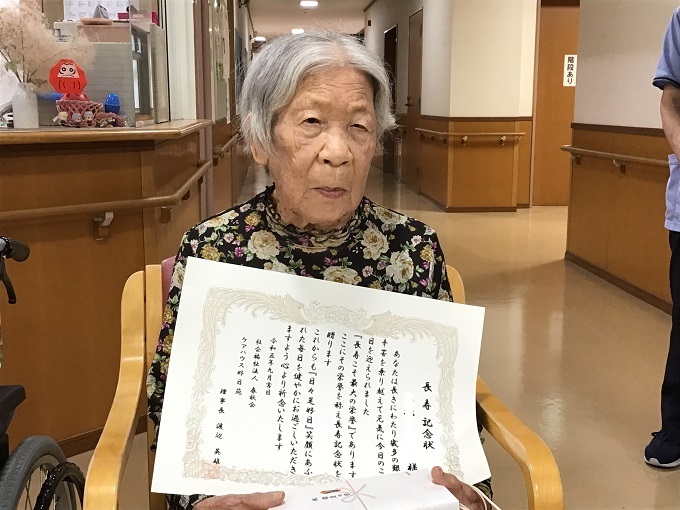 長寿記念状
様
あなたは長きにわたり幾多の艱
辛苦を乗り越えて元気に今日のこ
日を迎えられました
『長寿こそ最大の栄誉』であります
ここにその栄誉を称え長寿記念状を
贈ります
これからも『日々是好日』笑顔にあふ
れた毎日を健やかにお過ごしいただき
ますよう心より祈念いたします
令和五年九月吉日
社会福祉法人 春秋会
ケアハウス好日苑
理事長 渡辺 英雄
階段あり